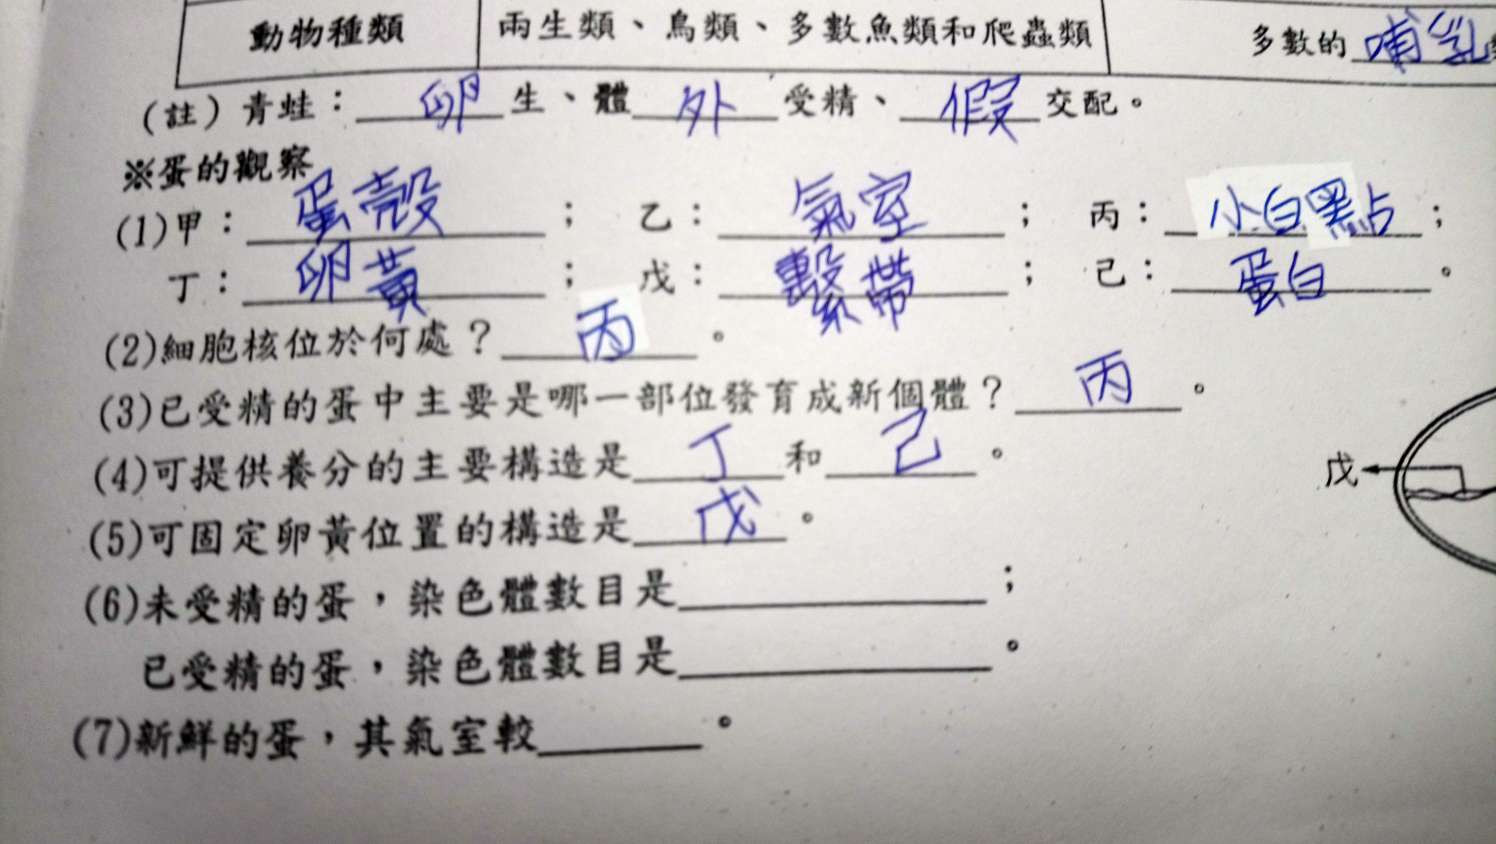 動物種類 兩生類、鳥類、多數魚類和爬蟲類 多數的哺乳
(註)青蛙：卵生、體外受精、假交配。
※蛋的觀察
(1)甲：蛋殼；乙：氣室；丙：小白黑點；
丁：卵黃；戊：繫帶；己：蛋白。
(2)細胞核位於何處？丙。
(3)已受精的蛋中主要是哪一部位發育成新個體？丙。
(4)可提供養分的主要構造是丁和己。
(5)可固定卵黃位置的構造是戊。
戊
(6)未受精的蛋，染色體數目是______；
已受精的蛋，染色體數目是______。
(7)新鮮的蛋，其氣室較______。